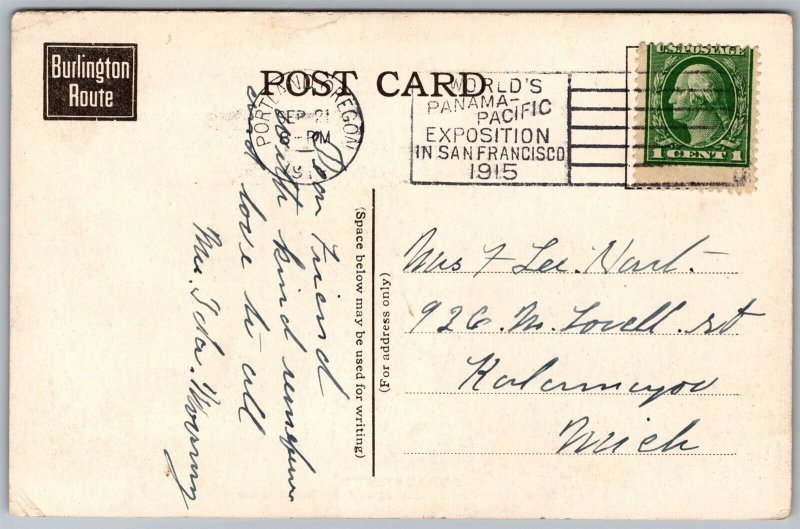 Burlington
Route
POST CARD
PORTLAND OREGON
SEP 21
8-PM
191
WORLD'S
PANAMA-
PACIFIC
EXPOSITION
IN SAN FRANCISCO
1915
U.S. POSTAGE
1 CENT 1
Dear Friend
with kind
and love to all
Mrs. Ida
(Space below may be used for writing)
(For address only)
Mrs F Lee. Hart.
926. W. Lovell. st
Kalamazoo
Mich